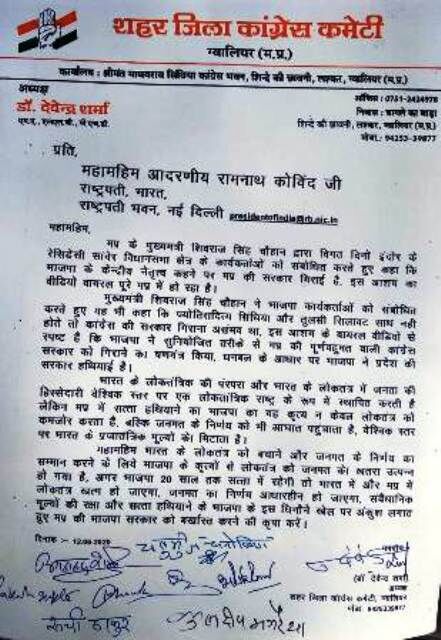 शहर जिला कांग्रेस कमेटी
ग्वालियर (म.प्र.)
कार्यालय : श्रीमंत माधवराव सिंधिया कांग्रेस भवन, शिन्दे की छावनी, लश्कर, ग्वालियर (म.प्र.)
अध्यक्ष
डॉ. देवेन्द्र शर्मा
ऑफिस : 0751-2424978
निवास :
शिन्दे की छावनी, लश्कर, ग्वालियर (म.प्र.)
मोबा.: 94253-39877
प्रति,
महामहिम आदरणीय रामनाथ कोविंद जी
राष्ट्रपती, भारत,
राष्ट्रपती भवन, नई दिल्ली presidentofindia@rb.nic.in
महामहिम,
मप्र के मुख्यमंत्री शिवराज सिंह चौहान द्वारा विगत दिनो इंदौर के
रेसिडेंसी सांवेर विधानसभा क्षेत्र के कार्यकर्ताओं को संबोधित करते हुए कहा कि
भाजपा के केन्द्रीय नेतृत्व कहने पर मप्र की सरकार गिराई है, इस आशय का
वीडियो वायरल पूरे मप्र में हो रहा है।
मुख्यमंत्री शिवराज सिंह चौहान ने भाजपा कार्यकर्ताओं को संबोधित
करते हुए यह भी कहा कि ज्योतिरादित्य सिंधिया और तुलसी सिलावट साथ नही
होते तो कांग्रेस की सरकार गिराना असंभव था, इस आशय के वायरल वीडियो से
स्पष्ट है कि भाजपा ने सुनियोजित तरीके से मप्र की पूर्णबहुमत वाली कांग्रेस
सरकार को गिराने का षणयंत्र किया, धनबल के आधार पर भाजपा ने प्रदेश की
सरकार हथियाई है।
भारत के लोकतंत्रिक की परंपरा और भारत के लोकतंत्र में जनता की
हिस्सेदारी वेश्विक स्तर पर एक लोकतांत्रिक राष्ट्र के रूप में स्थापित करती है
लेकिन मप्र में सत्ता हथियाने का भाजपा का यह कुत्य न केवल लोकतंत्र को
कमजोर करता है, बल्कि जनमत के निर्णय को भी आघात पहुचाता है, वेश्विक स्तर
पर भारत के प्रजातत्रिक मूल्यो को मिटाता है।
महामहिम भारत के लोकतंत्र को बचाने और जनमत के निर्णय का
सम्मान करने के लिये भाजपा के कुत्यो से लोकतंत्र को जनमत को खतरा उत्पन्न
हो गया है, अगर भाजपा 20 साल तक सत्ता में रहेगी तो भारत मे और मप्र में
लोकतंत्र खत्म हो जाएगा, जनमत का निर्णय आधारहीन हो जाएगा, संवैधानिक
मूल्यों की रक्षा और सत्ता हथियाने के भाजपा के इस घिनौने खेल पर अंकुश लगाते
हुए मप्र की भाजपा सरकार को बर्खास्त करने की कृपा करें।
दिनांक :- 12.06-2020
(डॉ देवेन्द्र शर्मा)
अध्यक्ष
शहर जिला कांग्रेस कमेटी, ग्वालियर
मोबा. 9425339877
रूची ठाकुर